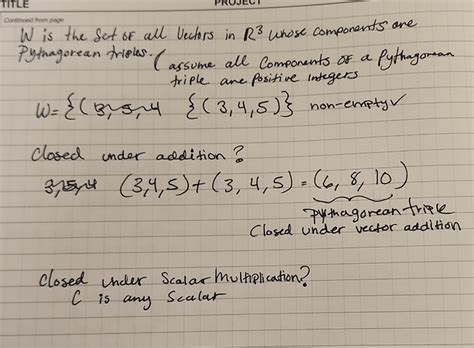 TITLE PROJECT
Continued from page
W is the Set of all Vectors in R³ whose components are
Pythagorean triples. (assume all Components of a Pythagorean
triple are Positive integers
W= {( 3, 5, 4 {(3,4,5)} non-empty ✓
Closed under addition?
3,5,4 (3,4,5)+(3, 4,5) = (6, 8, 10)
Pythagorean triple
Closed under vector addition
Closed under Scalar Multiplication?
C is any Scalar